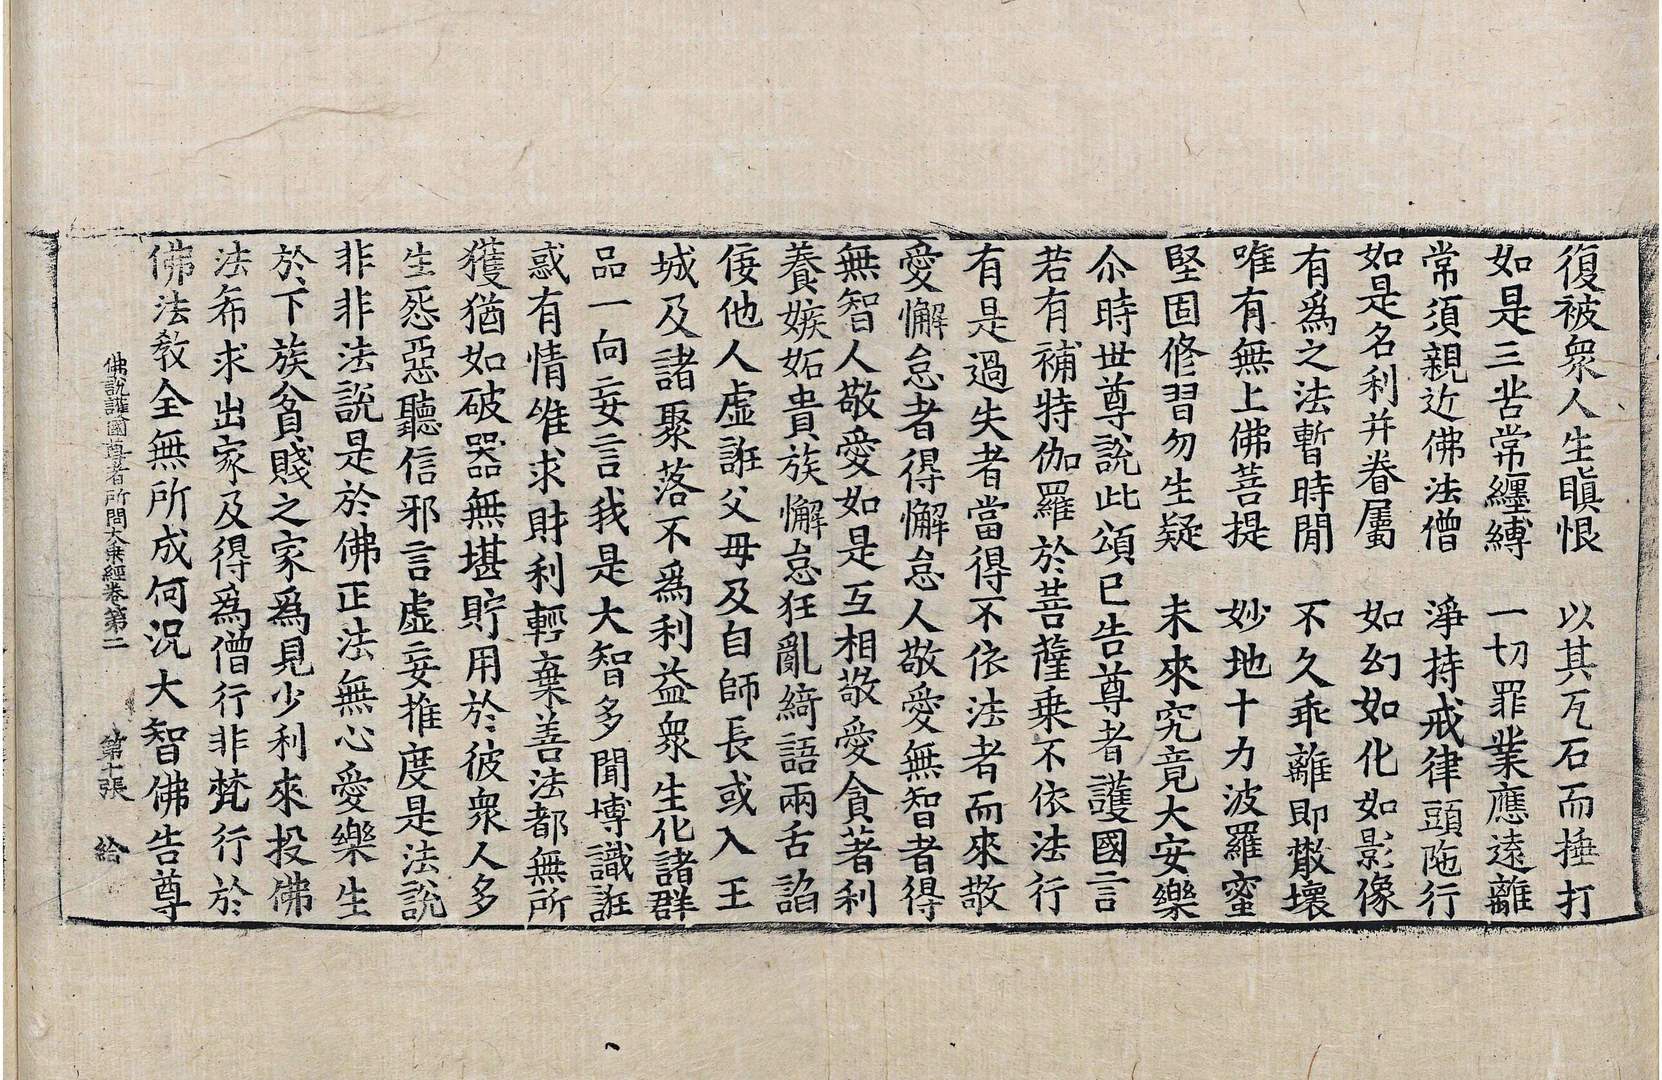 復被衆人生瞋恨　以其瓦石而捶打
如是三苦常纏縛　一切罪業應遠離
常須親近佛法僧　淨持戒律頭陁行
如是名利并眷屬　如幻如化如影像
有爲之法暫時閒　不久乖離即散壞
唯有無上佛菩提　妙地十力波羅蜜
堅固修習勿生疑　未來究竟大安樂
尒時世尊說此頌已告尊者護國言
若有補特伽羅於菩薩乗不依法行
有是過失者當得不依法者而來敬
愛懈怠者得懈怠人敬愛無智者得
無智人敬愛如是互相敬愛貪著利
養嫉妬貴族懈怠狂亂綺語兩舌諂
侫他人虛誑父母及自師長或入王
城及諸聚落不爲利益衆生化諸群
品一向妄言我是大智多聞博識誑
惑有情唯求財利輕棄善法都無所
獲猶如破器無堪貯用於彼衆人多
生惡聽信邪言虛妄推度是法說
非非法說是於佛正法無心愛樂生
於下族貧賤之家爲見少利來投佛
法布求出家及得爲僧行非梵行於
佛法教全無所成何況大智佛告尊
佛說護國尊者所問大乗經卷第二　第十張　給